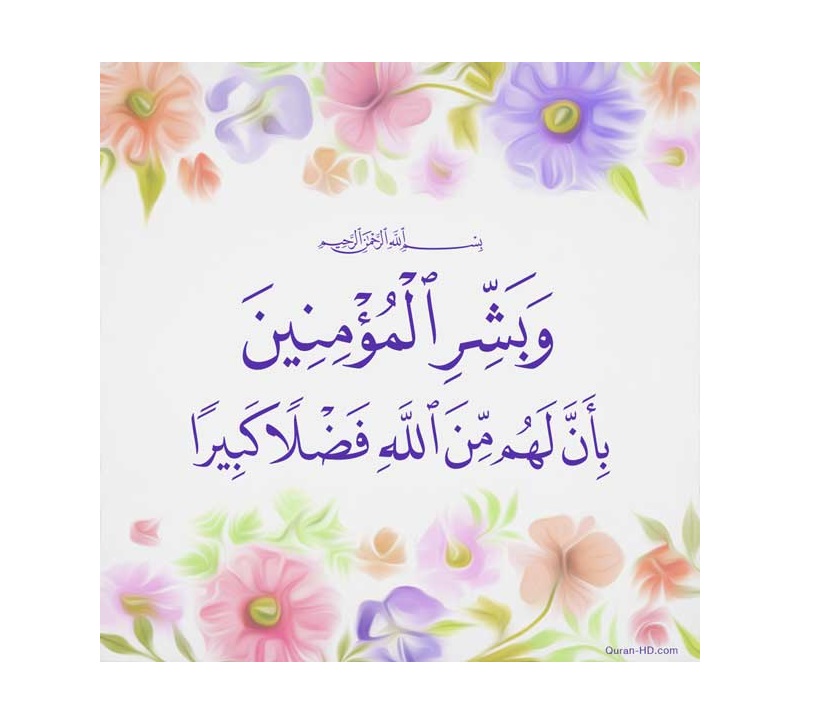 بِسْمِ ٱللَّهِ ٱلرَّحْمَٰنِ ٱلرَّحِيمِ
وَبَشِّرِ ٱلْمُؤْمِنِينَ
بِأَنَّ لَهُم مِّنَ ٱللَّهِ فَضْلًا كَبِيرًا
Quran-HD.com